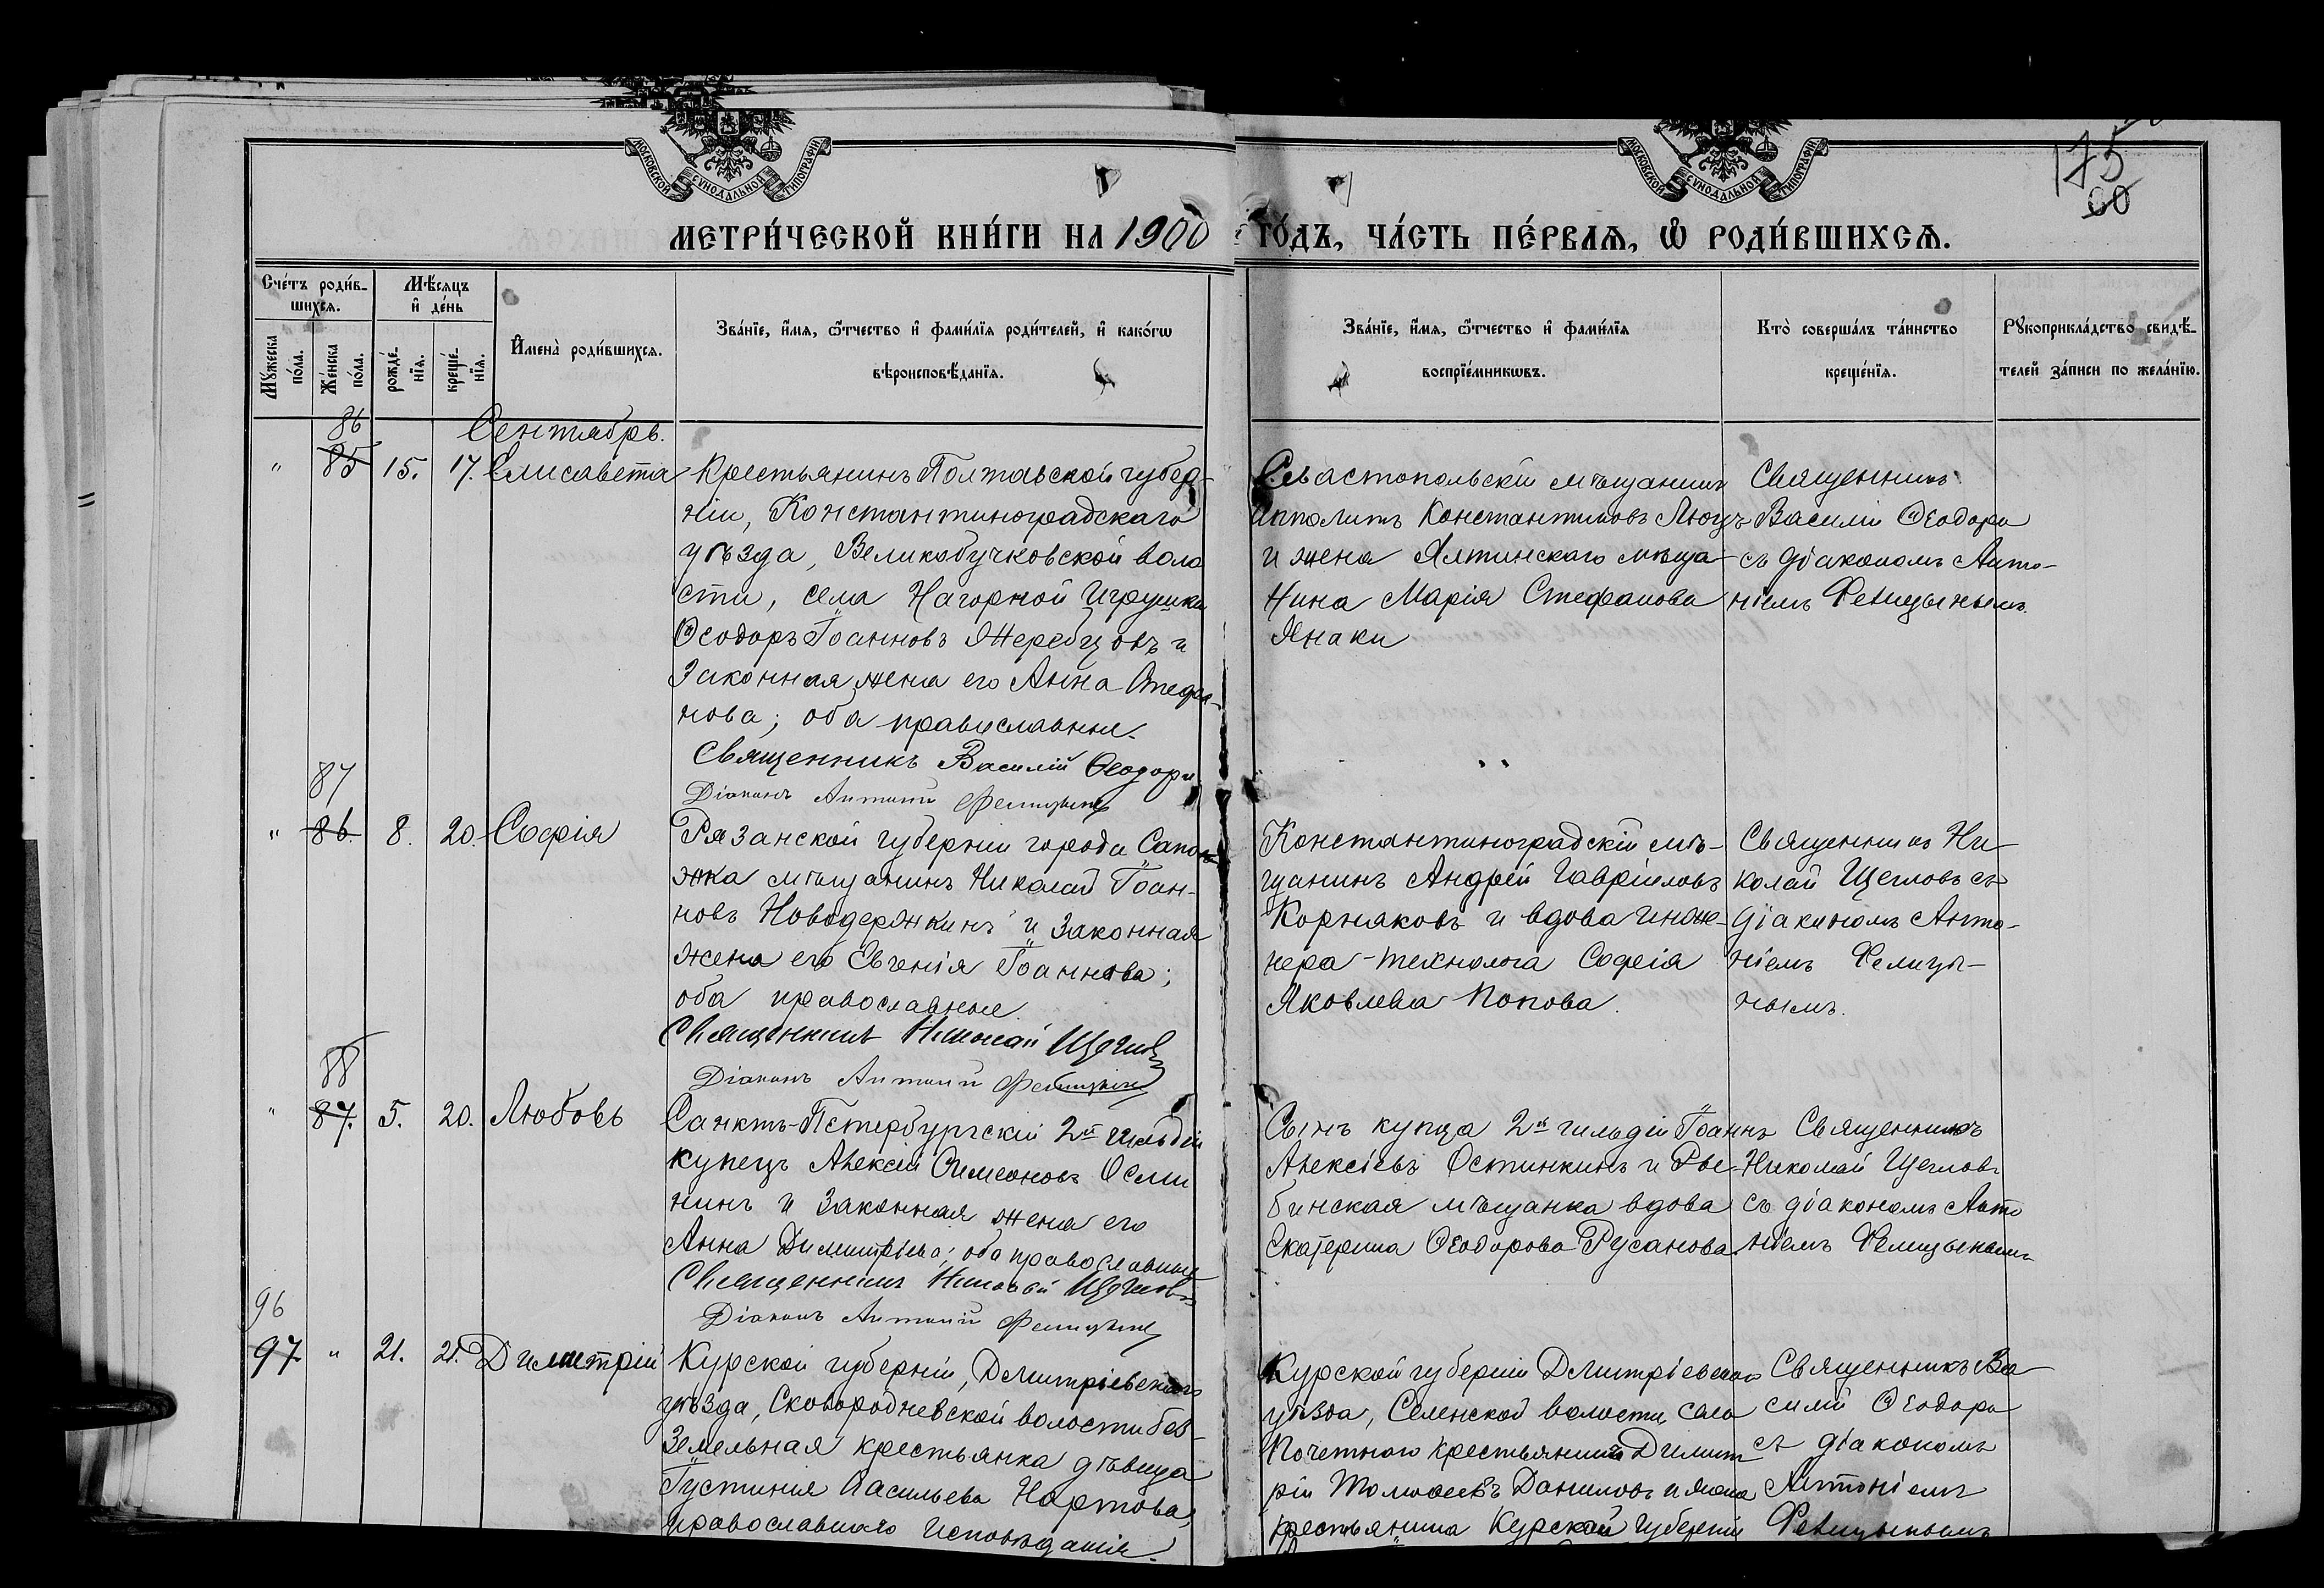 МОСКОВСКОЙ СѴНОДАЛЬНОЙ ТИПОГРАФІИ
МОСКОВСКОЙ СѴНОДАЛЬНОЙ ТИПОГРАФІИ
175
60
МЕТРИ́ЧЕСКОЙ КНИ́ГИ НА 1900 ГО́ДЪ, ЧА́СТЬ ПЕ́РВАѦ, Ѡ҆ РОДИ́ВШИХСѦ.
Сче́тъ роди́в-
шихсѧ.
Мꙋ́жеска по́ла.
Же́нска по́ла.
Мѣ́сѧцъ и҆ де́нь
рожде́-нїѧ.
креще́-нїѧ.
И҆мена̀ роди́вшихсѧ.
Зва́нїе, и҆́мѧ, ѻ҆́тчество и҆ фами́лїѧ роди́телей, и҆ како́гѡ
вѣроисповѣ́данїѧ.
Зва́нїе, и҆́мѧ, ѻ҆́тчество и҆ фами́лїѧ
воспрїе́мникѡвъ.
Кто̀ соверша́лъ та́инство
креще́нїѧ.
Рꙋкоприкла́дство свидѣ́-
телей за́писи по жела́нїю.
Сентябрь.
86
" 85 15. 17. Елисавета
Крестьянинъ Полтавской губер-
ніи, Константиноградскаго
уѣзда, Великобучковской воло
сти, села Нагорной
Ѳеодоръ Іоанновъ Жеребцовъ и
Законная жена его Анна Стефа-
нова; оба православные.
Священникъ Василій Ѳеодори
Діаконъ Антоній Фелицынъ
Севастопольскій мѣщанинъ
Ипполитъ Константиновъ
и жена Ялтинскаго мѣща-
нина Марія Стефанова
Янаки
Священникъ
Василій Ѳеодори
съ діакономъ Анто-
ніемъ Фелицынымъ.
87
" 86. 8. 20. Софія
Рязанской губерніи города Сапо-
жка мѣщанинъ Николай Іоан-
новъ Новодережкинъ и законная
жена его Евгенія Іоаннова;
оба православные.
Священникъ Николай Щегловъ
Діаконъ Антоній Фелицынъ
Константиноградскій мѣ-
щанинъ Андрей Гавріиловъ
Корняковъ и вдова инже-
нера-технолога Софія
Яковлева Попова.
Священникъ Ни-
колай Щегловъ съ
діакономъ Анто-
ніемъ Фелицы-
нымъ.
88
" 87. 5. 20. Любовь
Санктъ-Петербургскій 2й гильдіи
купецъ Алексій Симеоновъ Осми
нинъ и законная жена его
Анна Димитріева; оба православные
Священникъ Николай Щегловъ
Діаконъ Антоній Фелицынъ
Сынъ купца 2й гильдіи Іоаннъ
Алексіевъ и Рыс-
бинская мѣщанка вдова
Екатерина Ѳеодорова Русанова.
Священникъ
Николай Щегловъ
съ діакономъ Анто
ніемъ Фелицынымъ
96
97 " 21. 21. Димитрій
Курской губерніи, Дмитріевскаго
уѣзда, Сковородневской волости без-
земельная крестьянка дѣвица
Іустинія Васильева Нартова,
православнаго исповѣданія.
Курской губерніи Дмитріевскаго
уѣзда, Селенской волости, села
Почетнаго крестьянинъ Димит
рій Даниловъ и жена
крестьянина Курской губерніи
Священникъ Ва
силій Ѳеодори
съ діакономъ
Антоніемъ
Фелицынымъ